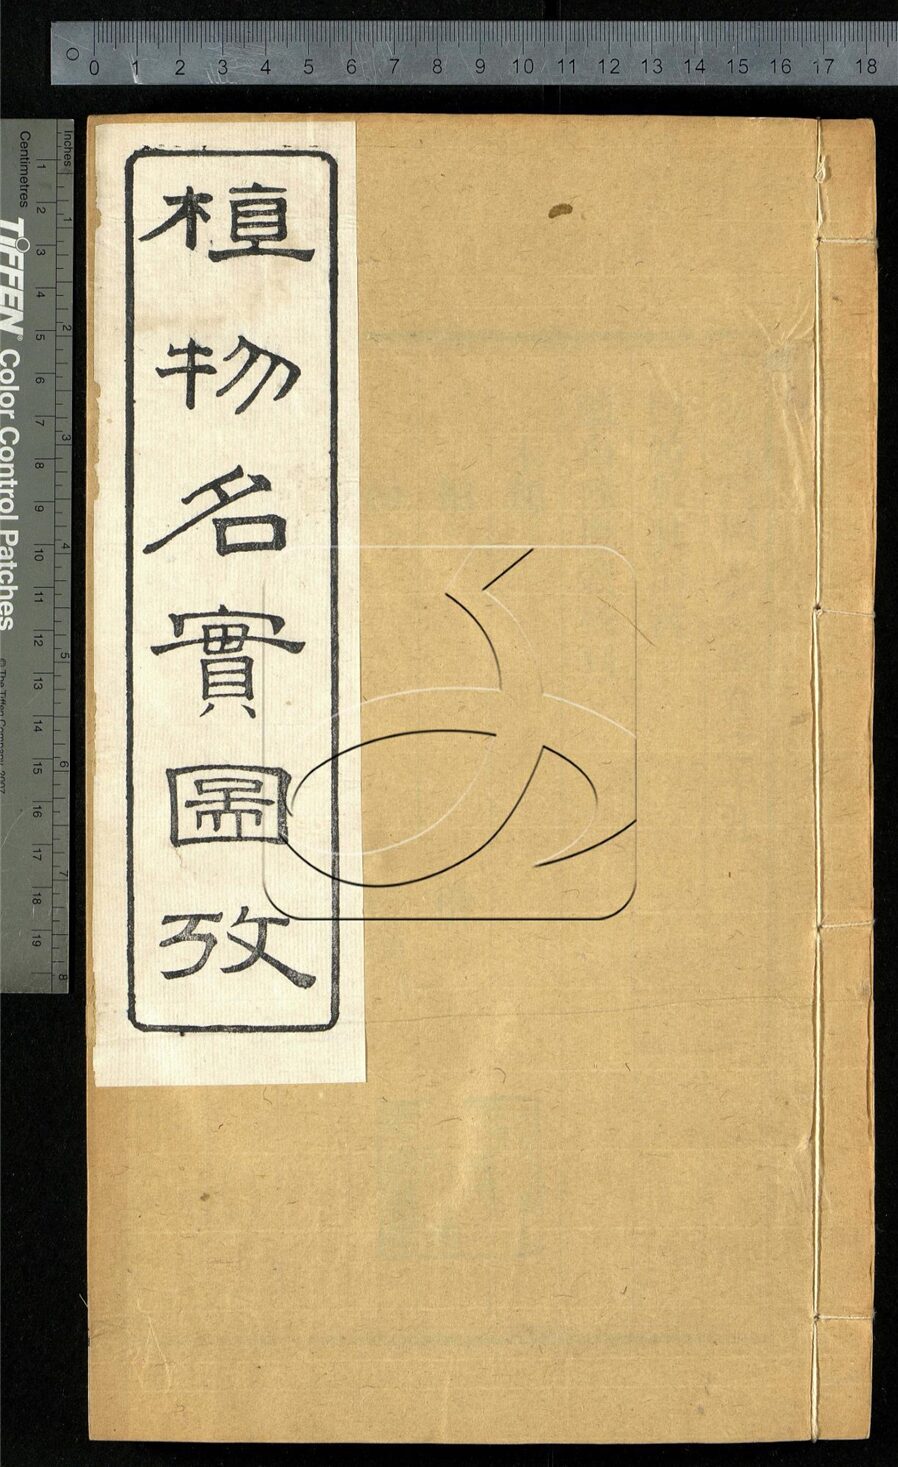 0 1 2 3 4 5 6 7 8 9 10 11 12 13 14 15 16 17 18
Inches 1 2 3 4 5 6 7 8
Centimetres 1 2 3 4 5 6 7 8 9 10 11 12 13 14 15 16 17 18 19
TIFFEN® Color Control Patches
© The Tiffen Company, 2007
植物名實圖攷